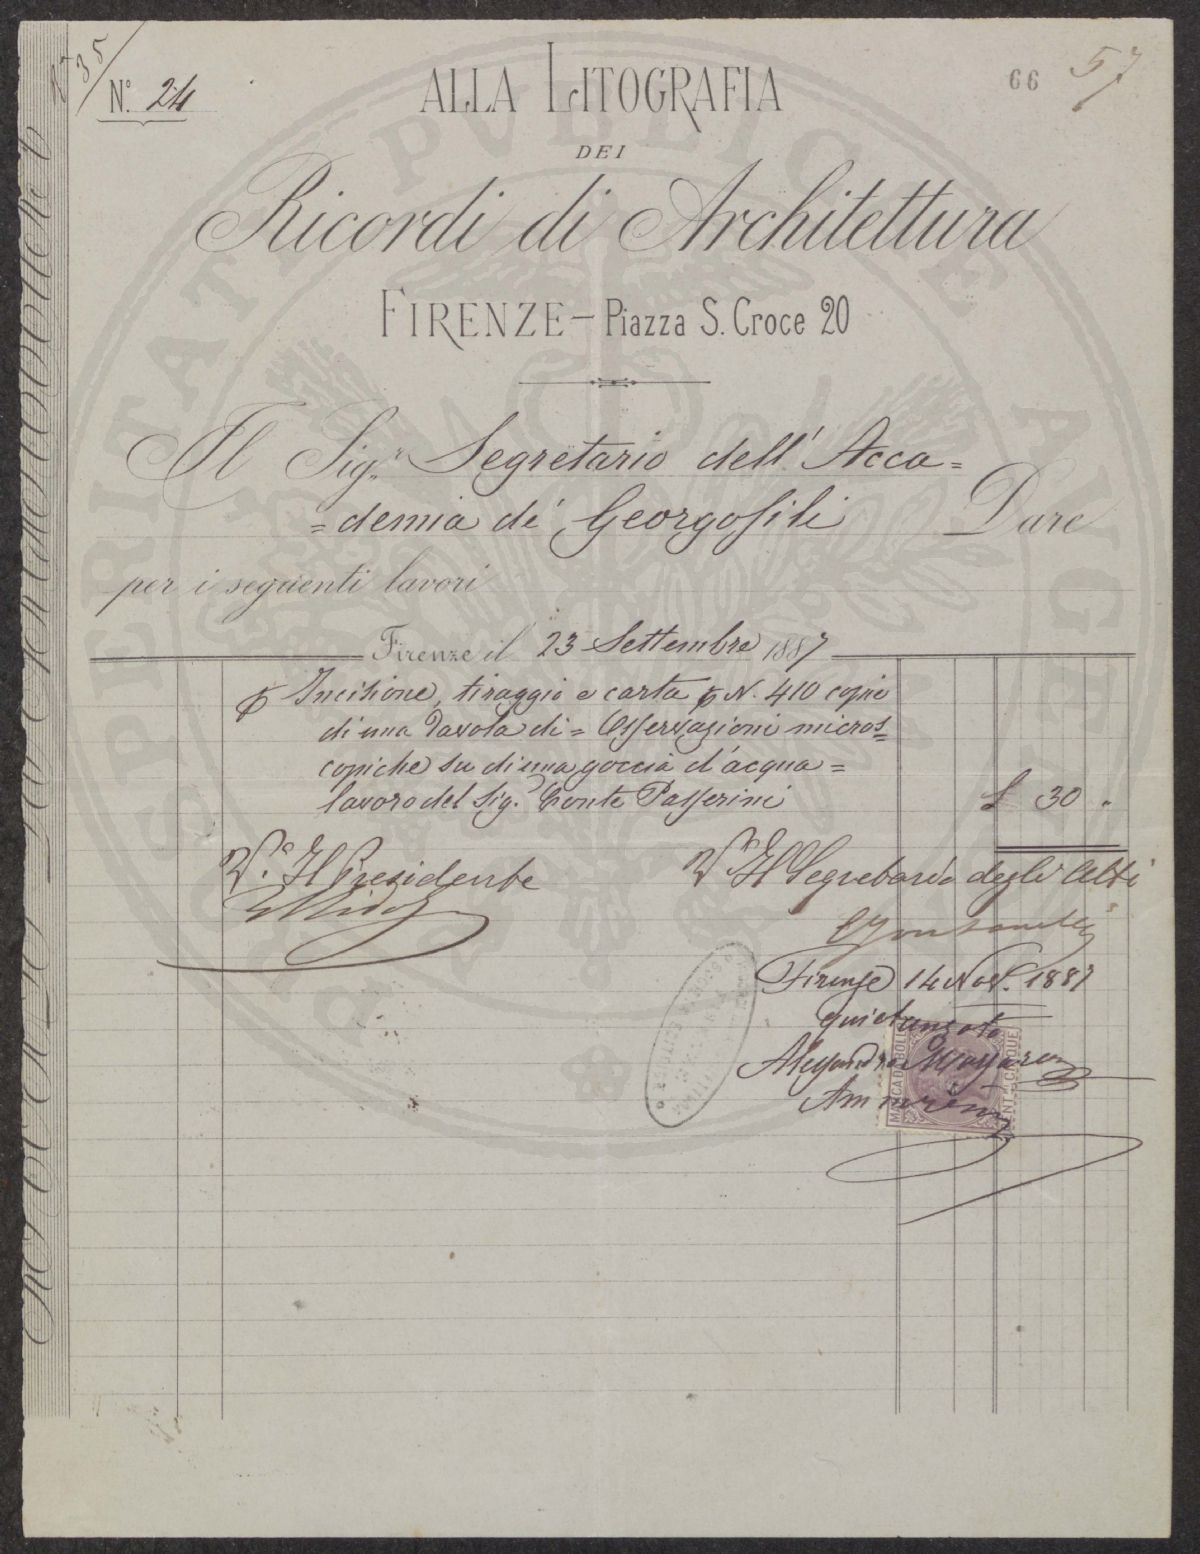 N.° 24
35
66
57
ALLA LITOGRAFIA
DEI
Ricordi di Architettura
FIRENZE - Piazza S. Croce 20
Il Sig.r Segretario dell' Acca=
=demia dé Georgofili Dare
per i seguenti lavori
Firenze il 23 Settembre 1887
Incisione, tiraggio e carta p N. 410 copie
di una Tavola di = Osservazioni micros=
copiche su di una goccia d'acqua =
lavoro del Sig. Conte Passerini £ 30 "
V.° Il Presidente
V.° Il Segretario degli Atti
Firenze 14 Nov. 1887
quietanzato
Alessandro
MARCA DA BOLLO
CENT. CINQUE
PROSPERITATI PUBLICAE AUGENDAE